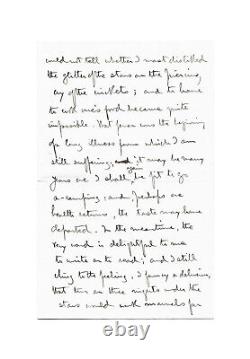 could not tell whether I most disliked
the glitter of the stars or the piercing
cry of the crickets; and to have
to cook one's food became quite
impossible. That fever was the beginning
of a long illness from which I am
still suffering, and it may be many
years ere I shall again be fit to go
a-camping; and perhaps ere
health returns, the taste may have
departed. In the meantime, the
very word is delightful to me
to write or to read; and I still
cling to the feeling, I fancy a delusion,
that two or three nights under the
stars would work marvels for